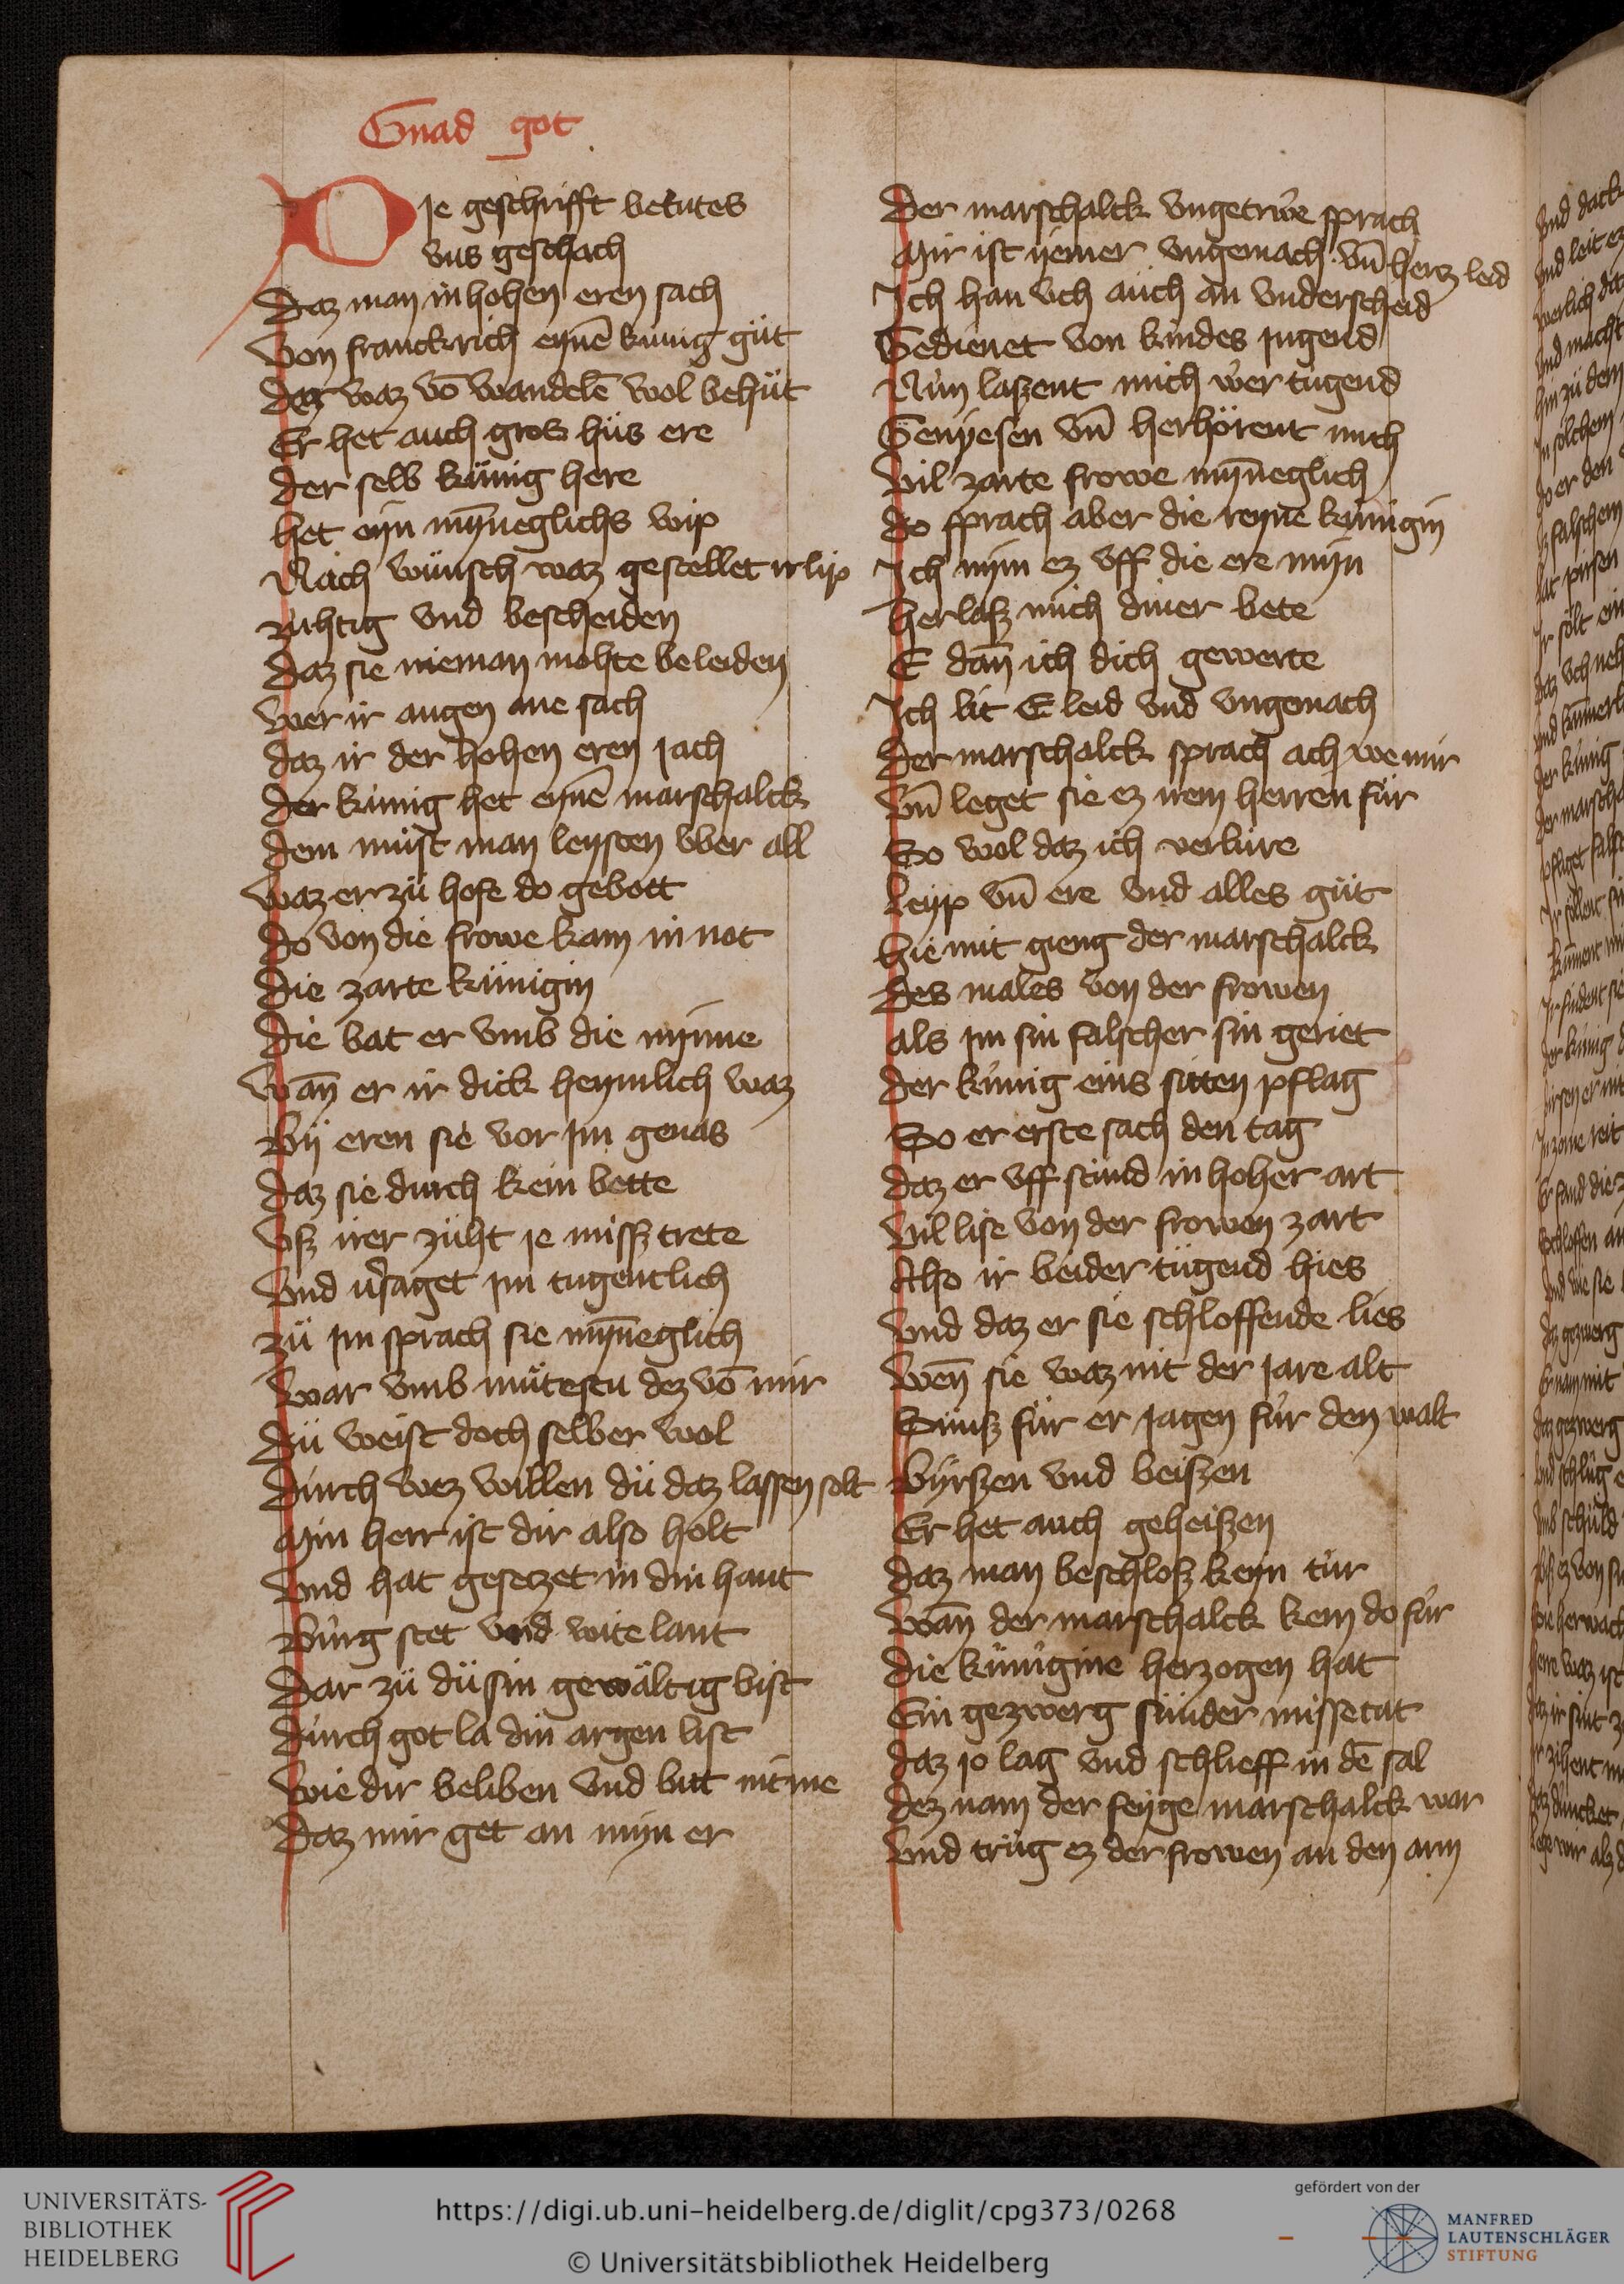 Gnad got
DIe geschrifft betutes
vns geschach
Daz man in hohen eren sach
Von franckrich eynē künig güt
Der waz vō wandelē wol behüt
Er het auch gros hüs ere
Der selb künig here
het eyn mȳneglichs wip
Nach wünsch waz gestellet ir lip
zuhtig vnd bescheiden
Daz sie nieman mohte beleiden
Wer ir augen ane sach
Daz ir der hohen eren jach
Der künig het eynē marschalck
Dem müst man leysten vber all
Waz er zü hofe do gebott
Do von die frowe kam in not
Die zarte künigin
Die bat er vmb die mynne
Wān er ir dick heymlich waz
By eren sie vor jm genas
Daz sie durch kein bette
Vsz irer züht je missz trete
Vnd v̓saget jm tugentlich
zü jm sprach sie mȳneglich
War vmb mütestu dez vō mir
Dü weist doch selber wol
Durch wez willen dü daz lassen solt
Min herr ist dir also holt
Vnd hat gesetzet in din hant
Bürg stet vnd wite lant
Dar zü dü sin gewältig bist
Durch got la din argen list
Wie dir beliben vnd bitt nit me
Daz mir get an myn er
Der marschalck vngetrüe sprach
Mir ist yemer vngemach vn̄ hertz leid
Ich han vch auch an vnderscheid
Gedienet von kindes jugend
Nün laszent mich uwer tugend
Genyesen vn̄ herhörent mich
Vil zarte frowe mȳneglich
Do sprach aber die reyne kunigin
Ich nym ez vff die ere myn
herlasz mich diner bete
E dan̄ ich dich gewerte
Ich lit E leid vnd vngemach
Der marschalck sprach ach we mir
Vn̄ leget sie ez irem herren für
So wol daz ich verlüre
Leyp vn̄ ere vnd alles güt
hie mit gieng der marschalck
Des males von der frowen
als jm sin falscher sin geriet
Der künig eins sitten pflag
So er erste sach den tag
Daz er vff stund in hoher art
Vil lise von der frowen zart
Also ir beider tügend hies
Vnd daz er sie schloffende lies
Wen̄ sie waz nit der jare alt
Sunsz für er jagen für den walt
Byrszen vnd beiszen
Er het auch geheiszen
Daz man beschlosz keyn tür
Wān der marschalck kem do für
Die künigine herzogen hat
Ein gezwerg sunder missetat
Daz jo lag vnd schlieff in dē sal
Dez nam der feyge marschalck war
Vnd trüg ez der frowen an den arm
UNIVERSITÄTS-
BIBLIOTHEK
HEIDELBERG
https://digi.ub.uni-heidelberg.de/diglit/cpg373/0268
© Universitätsbibliothek Heidelberg
gefördert von der
MANFRED
LAUTENSCHLÄGER
STIFTUNG